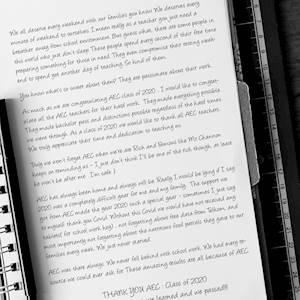 We all deserve every weekend with our families you know. We deserves every
minute of weekend to ourselves. I mean really as a teacher you just need a
breather away from school environment. But guess what, there are some people in
this world who just don't sleep. These people spend every second of their free time
preparing something for those in need. They even compromise their resting week-
end to spend yet another day of teaching for kind of them.
You know what's so sweet about them? They are passionate about their work.
As much as we are congratulating AEC class of 2020. I would like to congrat-
ulate all the AEC teachers for their hard work. They made marketing possible
They made bachelor pass and distinctions possible regardless of the hard times
we went through. As a class of 2020 we would like to thank all AEC teachers.
We truly appreciate their time and dedication to teaching us.
Truly we won't forget AEC when we are Rich and Famous like Mr Channon
keeps on reminding us - I just don't think I'll be one of the rich though, at least
he won't be after me. I'm safe )
AEC has always been home and always will be. Really I would be lying if I say
2020 was a completely difficult year for me and my family. The support we
got from AEC made the year 2020 such a special year - sometimes I just say
to myself thank you Covid. Without this Covid we would have not received any
tablets( for school work key), not forgetting about free data from Telkom, and
most importantly not forgetting about the nutritious food parcels they gave to our
families every week. We just never starved.
AEC was there always. We never fell behind with school work. We had every re-
source we could ever ask for. These amazing results are all because of AEC
THANK YOU AEC : Class of 2020
we learned and we passed!!!